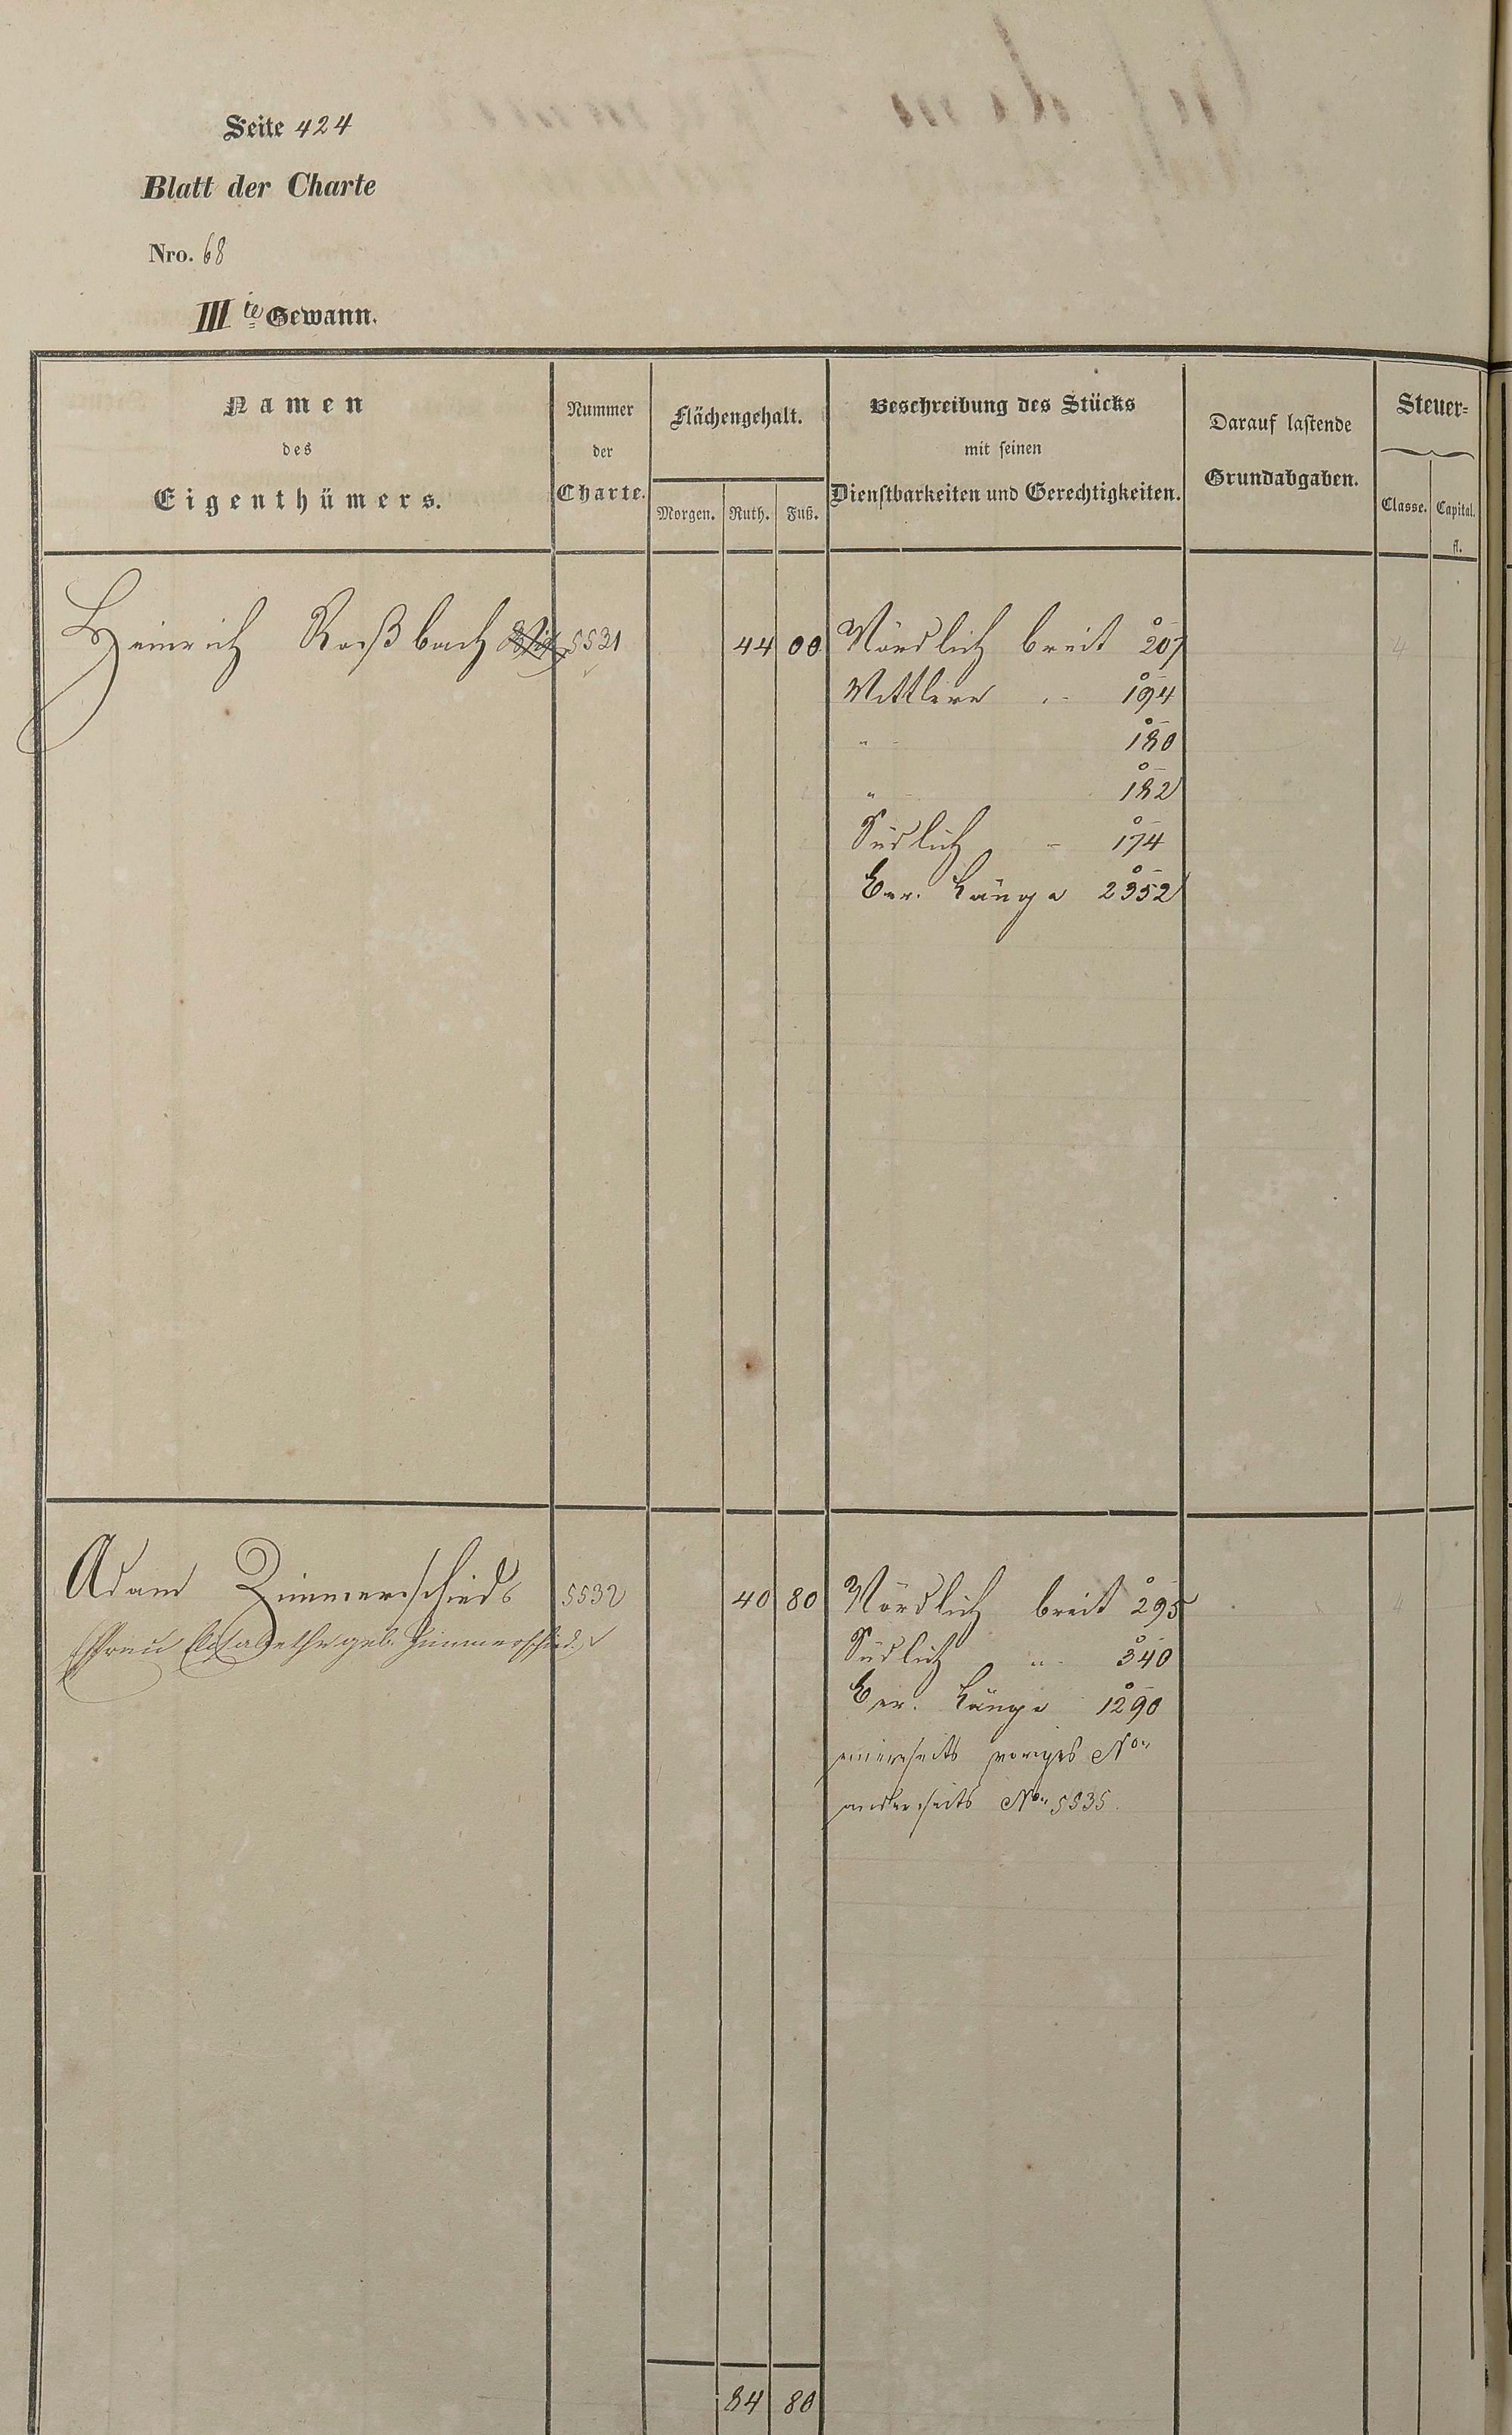 Seite 424
Blatt der Charte
Nro. 68
III te Gewann.
Namen
des
Eigenthümers.
Nummer
der
Charte.
Flächengehalt.
Morgen. Ruth. Fuß.
Beschreibung des Stücks
mit seinen
Dienstbarkeiten und Gerechtigkeiten.
Darauf lastende
Grundabgaben.
Steuer-
Classe. Capital.
fl.
Heinrich Roßbach 5531 44 00 Nördlich breit 207 4
Mittlere „ 194
„ 180
„ 182
Südlich „ 174
Cor. Länge 2352
Adam Zimmerschied 5532 40 80 Nördlich breit 295 4
Frau Elisabethe geb. Zimmerschied
Südlich „ 340
Cor. Länge 1290
einerseits voriges No.
anderseits No. 5535.
84 80